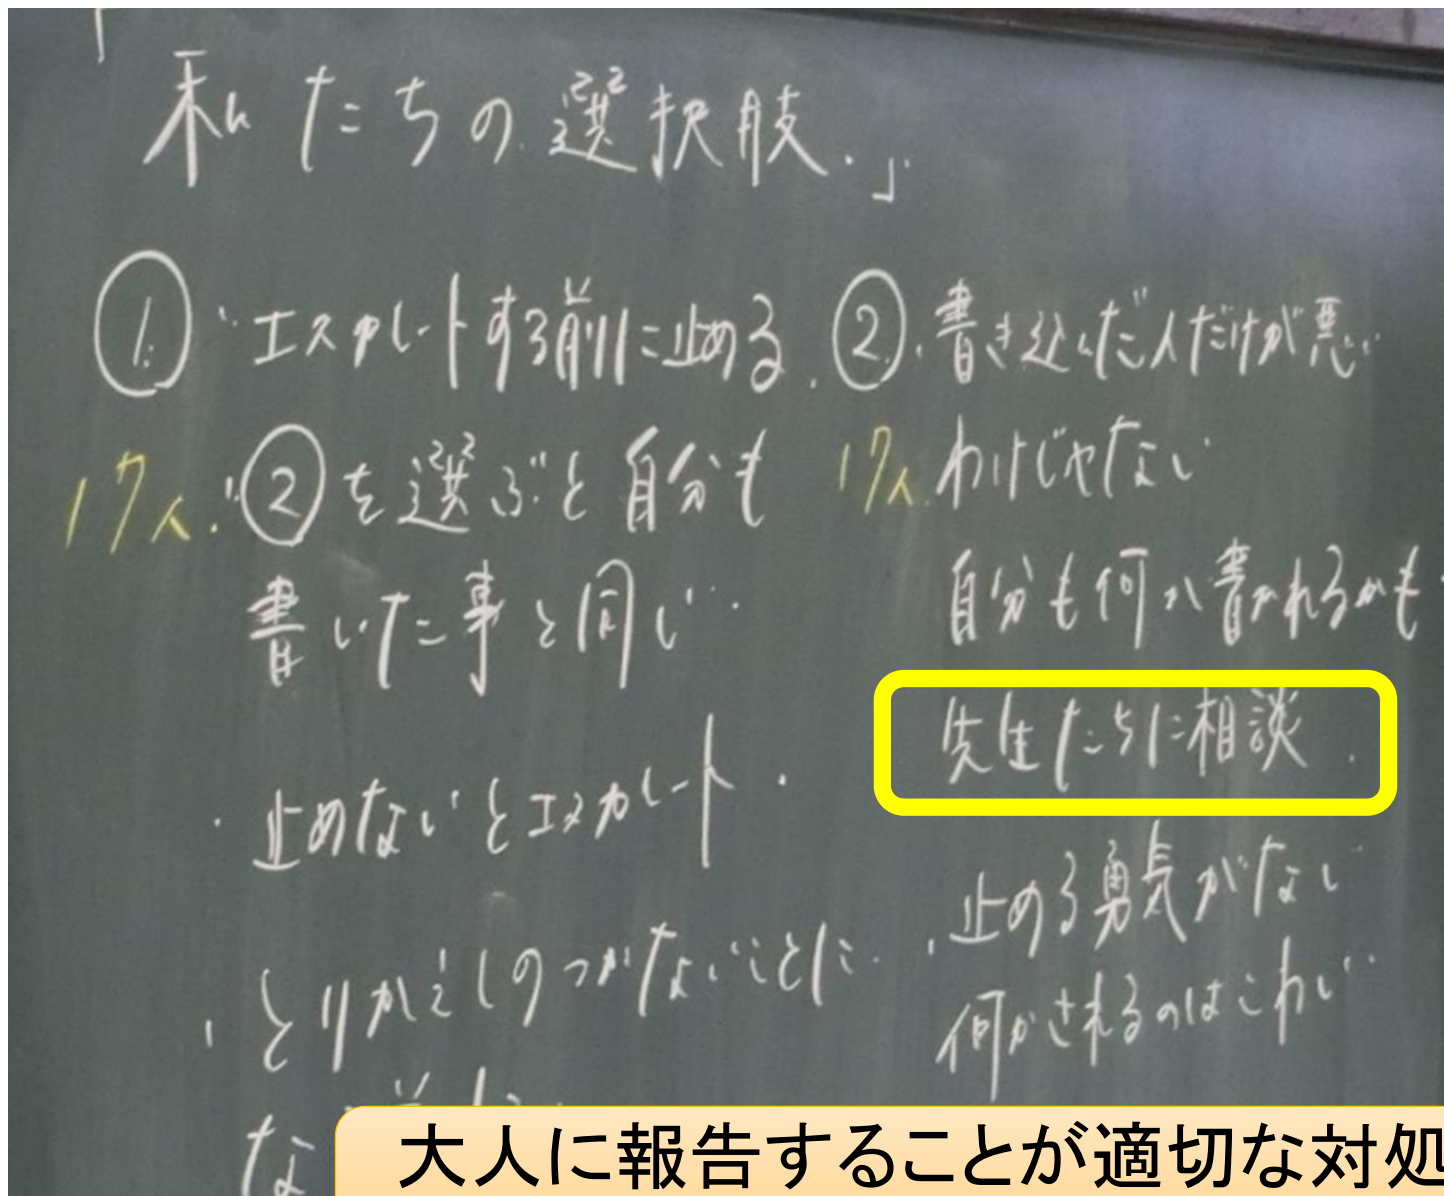 「私たちの選択肢.」
① ・エスカレートする前に止める
17人. ・②を選ぶと自分も
書いた事と同じ
・止めないとエスカレート
・とりかえしのつかないことに
な
② ・書き込んだ人だけが悪い
17人. わけじゃない
自分も何か書かれるかも
先生たちに相談
・止める勇気がない
何かされるのはこわい
大人に報告することが適切な対処